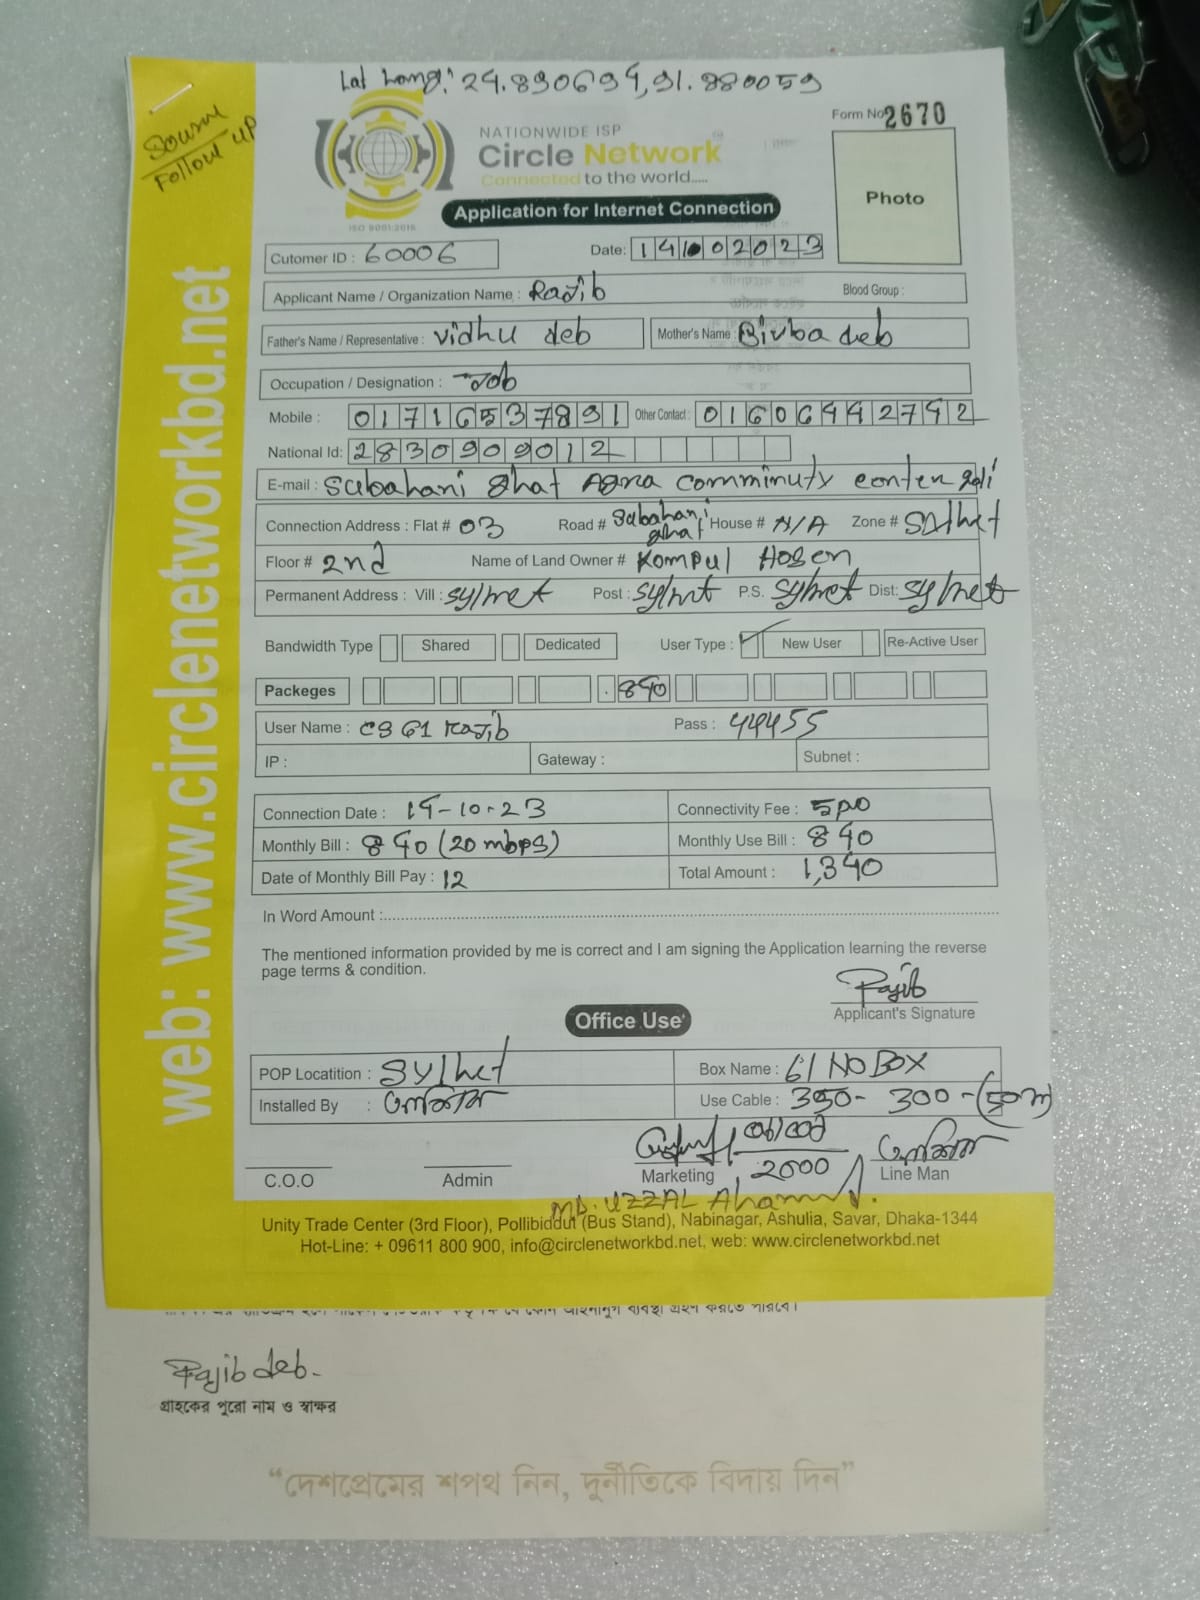 Lat Long: 24.890694, 91.880059
Follow up
Form No 2670
NATIONWIDE ISP
Circle Network
Connected to the world.....
ISO 9001:2015
Photo
Application for Internet Connection
Cutomer ID : 60006 Date: 14102023
Applicant Name / Organization Name : Rajib Blood Group :
Father's Name / Representative : Vidhu deb Mother's Name : Bivba deb
Occupation / Designation : Job
Mobile : 01716537891 Other Contact : 01606442742
National Id: 2830909012
E-mail : Subahani ghat Agra comminuty center goli
Connection Address : Flat # 03 Road # Subahani ghat House # N/A Zone # Sylhet
Floor # 2nd Name of Land Owner # Kompul Hosen
Permanent Address : Vill : Sylhet Post : Sylhet P.S. Sylhet Dist: Sylhet
Bandwidth Type Shared Dedicated User Type : New User Re-Active User
Packeges 840
User Name : CS 61 Rajib Pass : 44455
IP : Gateway : Subnet :
Connection Date : 14-10-23 Connectivity Fee : 500
Monthly Bill : 840 (20 mbps) Monthly Use Bill : 840
Date of Monthly Bill Pay : 12 Total Amount : 1,340
In Word Amount :
The mentioned information provided by me is correct and I am signing the Application learning the reverse
page terms & condition.
Rajib
Applicant's Signature
Office Use
POP Locatition : Sylhet Box Name : 61 NO BOX
Installed By : Use Cable : 350 - 300 - (50m)
2000
C.O.O Admin Marketing Line Man
MD. UZZAL Ahammed
Unity Trade Center (3rd Floor), Pollibiddut (Bus Stand), Nabinagar, Ashulia, Savar, Dhaka-1344
Hot-Line: + 09611 800 900, info@circlenetworkbd.net, web: www.circlenetworkbd.net
web: www.circlenetworkbd.net
Rajib deb.
গ্রাহকের পুরো নাম ও স্বাক্ষর
“দেশপ্রেমের শপথ নিন, দুর্নীতিকে বিদায় দিন”